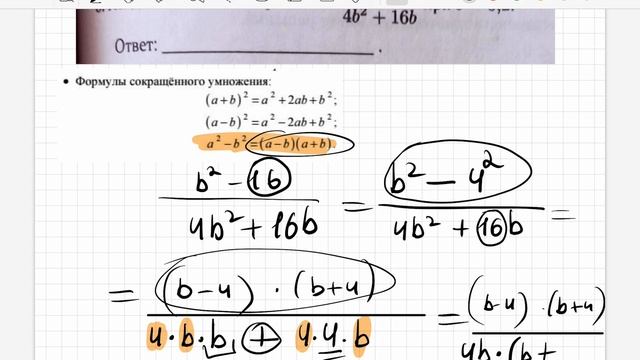 4b² + 16b
Ответ: ____________________ .
• Формулы сокращённого умножения:
(a+b)² = a² + 2ab + b² ;
(a−b)² = a² − 2ab + b² ;
a² − b² = (a−b)(a+b)
b² − 16 / 4b² + 16b = b² − 4² / 4b² + 16b =
= (b−4) · (b+4) / 4·b·b + 4·4·b = (b−4) · (b+4) / 4b · (b+